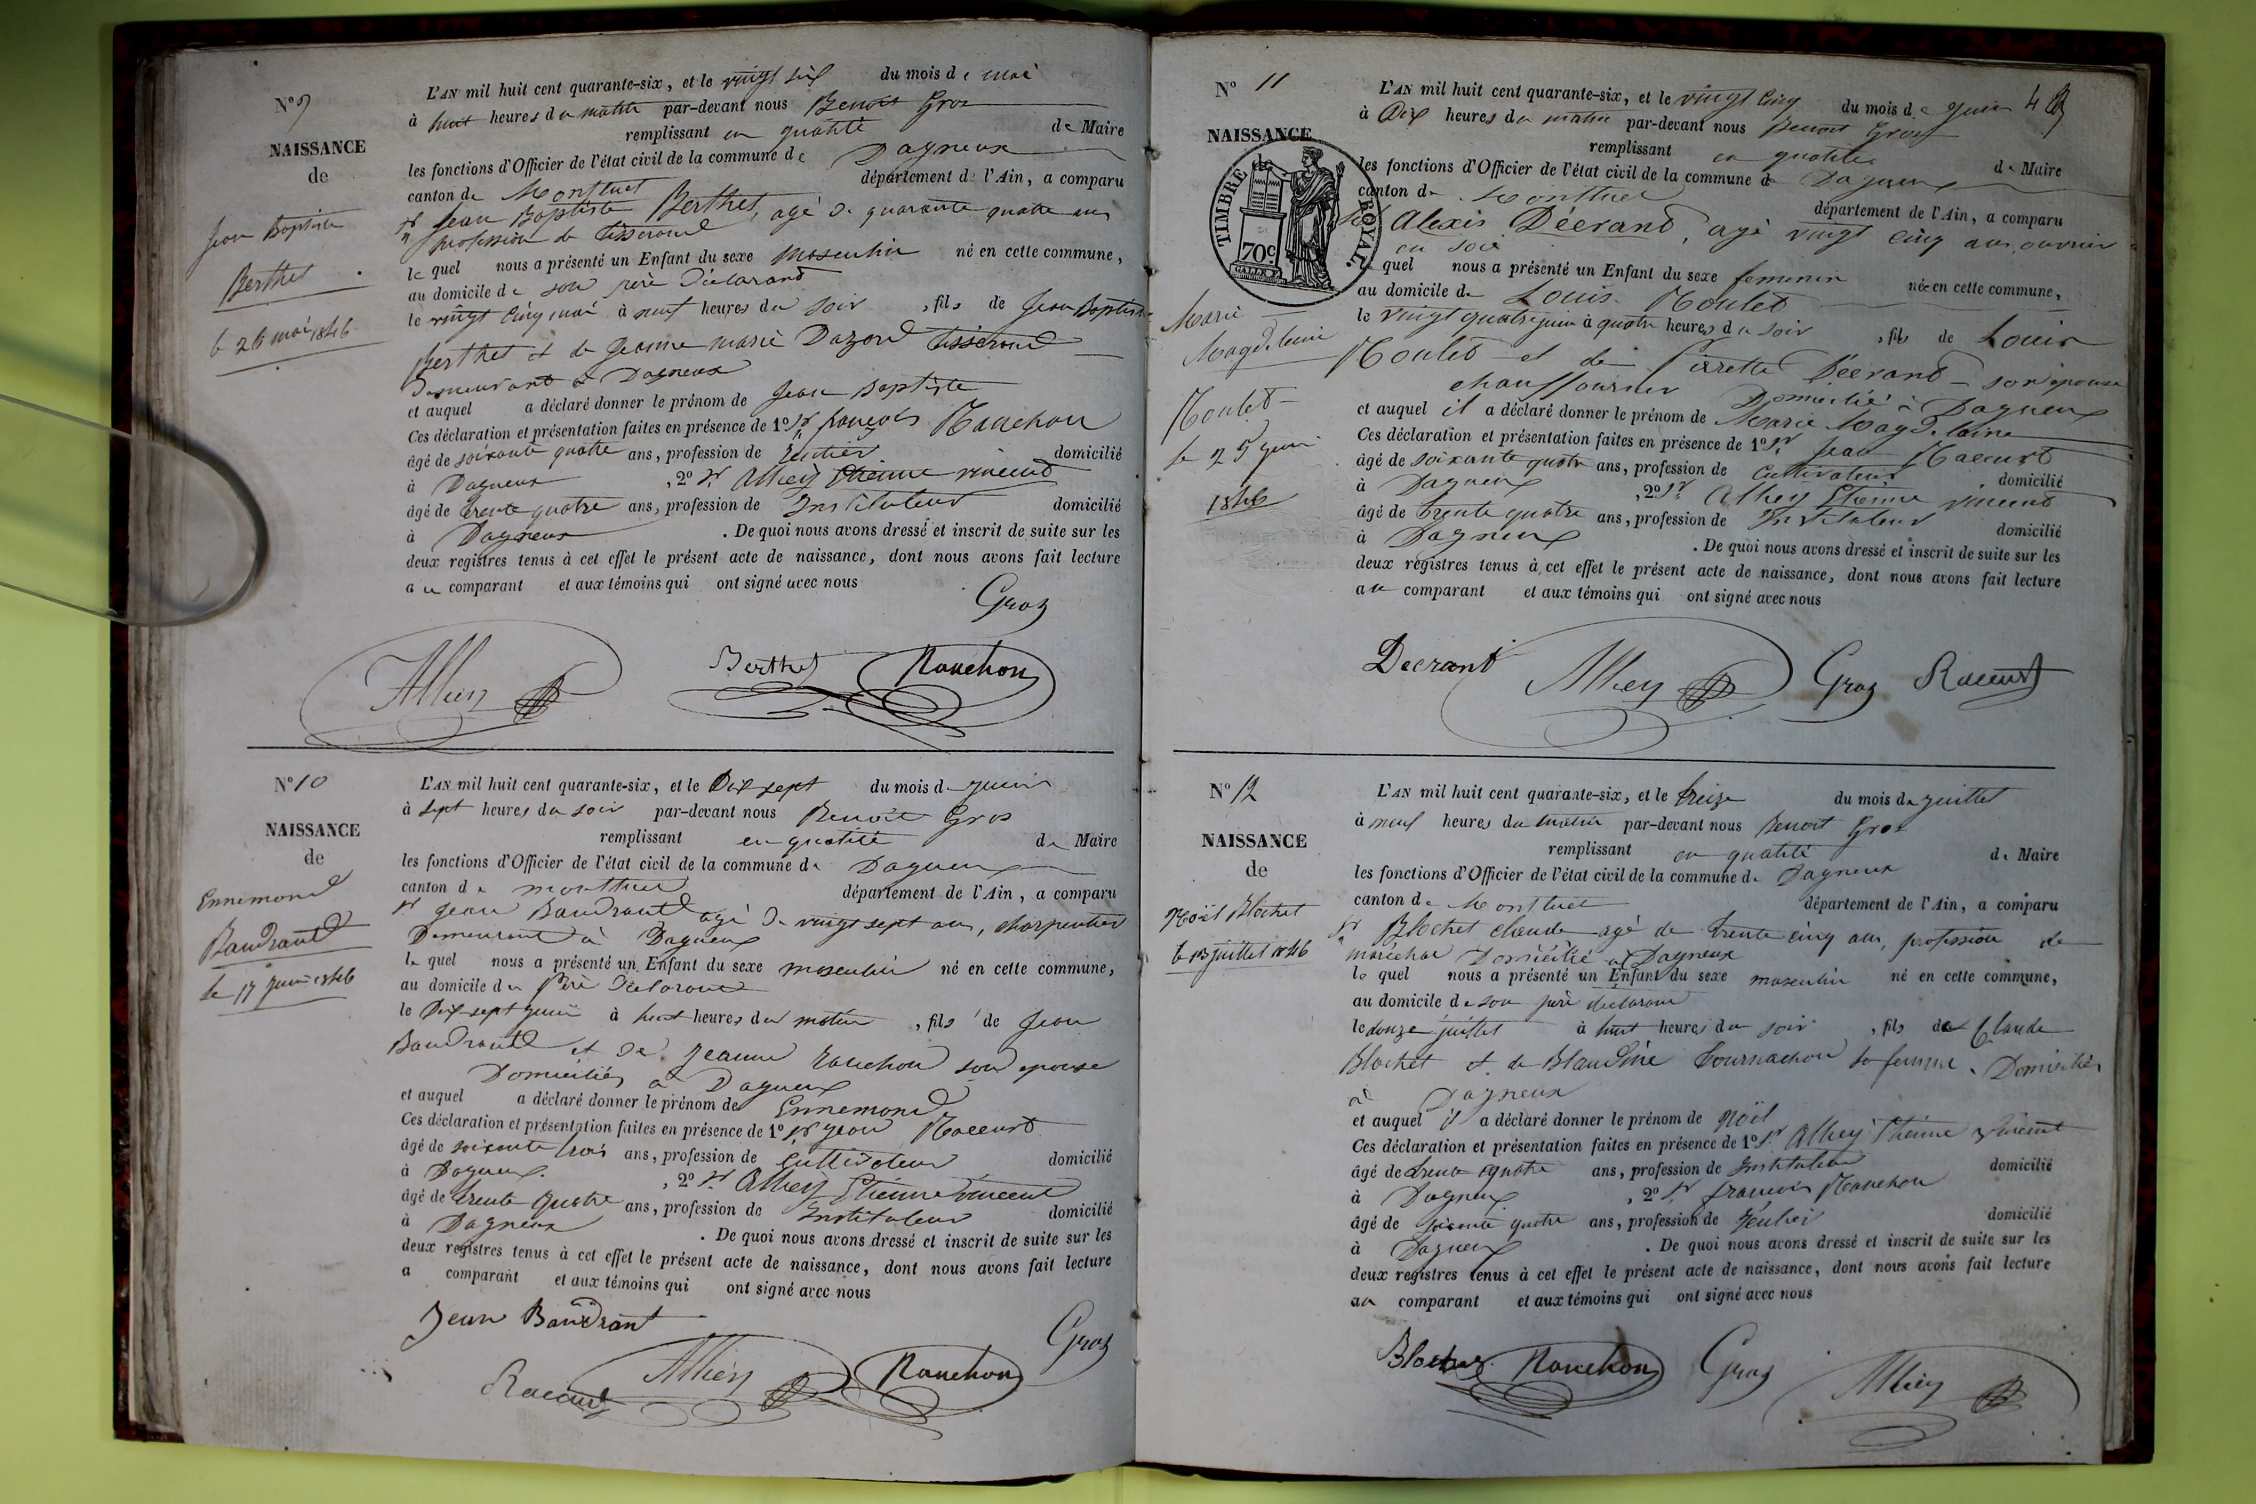 N° 9
NAISSANCE
de
Jean Baptiste
Berthet
le 26 mai 1846
L'AN mil huit cent quarante-six, et le vingt six du mois de mai
à huit heures du matin par-devant nous Benoit Groz
remplissant en qualité de Maire
les fonctions d'Officier de l'état civil de la commune de Dagneux
canton de Montluel département de l'Ain, a comparu
Sr Jean Baptiste Berthet, agé de quarante quatre ans
profession de tisserand
le quel nous a présenté un Enfant du sexe masculin né en cette commune,
au domicile de son père déclarand
le vingt cinq mai à neuf heures du soir, fils de Jean Baptiste
Berthet et de Jeanne marie Dazord tisserand
demeurant à Dagneux
et auquel a déclaré donner le prénom de Jean Baptiste
Ces déclaration et présentation faites en présence de 1° Sr françois Rauchon
âgé de soixante quatre ans, profession de rentier domicilié
à Dagneux, 2° Sr Alhey Etienne vincent
âgé de trente quatre ans, profession de Instituteur domicilié
à Dagneux. De quoi nous avons dressé et inscrit de suite sur les
deux registres tenus à cet effet le présent acte de naissance, dont nous avons fait lecture
au comparant et aux témoins qui ont signé avec nous
Groz
Alhey Berthet Rauchon
N° 10
NAISSANCE
de
Ennemond
Baudrand
le 17 juin 1846
L'AN mil huit cent quarante-six, et le Dix sept du mois de juin
à sept heures du soir par-devant nous Benoit Gros
remplissant en qualité de Maire
les fonctions d'Officier de l'état civil de la commune de Dagneux
canton de montluel département de l'Ain, a comparu
Sr Jean Baudrand agé de vingt sept ans, charpentier
Demeurant à Dagneux
le quel nous a présenté un Enfant du sexe masculin né en cette commune,
au domicile du Père déclarand
le Dix sept juin à huit heures du matin, fils de Jean
Baudrand et de Jeanne Rauchon son epouse
Domiciliés à Dagneux
et auquel a déclaré donner le prénom de Ennemond
Ces déclaration et présentation faites en présence de 1° Sr Jean Raccurt
âgé de soixante trois ans, profession de Cultivateur domicilié
à Dagneux, 2° Sr Alhey Etienne vincent
âgé de trente quatre ans, profession de Instituteur domicilié
à Dagneux. De quoi nous avons dressé et inscrit de suite sur les
deux registres tenus à cet effet le présent acte de naissance, dont nous avons fait lecture
a comparant et aux témoins qui ont signé avec nous
Jean Baudrant Groz
Raccurt Alhey Rauchon
N° 11
NAISSANCE
TIMBRE ROYAL
70 c.
Marie
Magdeleine
Roulet
le 25 juin
1846
4
L'AN mil huit cent quarante-six, et le vingt cinq du mois de juin
à Dix heures du matin par-devant nous Benoit Groz
remplissant en qualité de Maire
les fonctions d'Officier de l'état civil de la commune de Dagneux
canton de Montluel département de l'Ain, a comparu
Alexis Décrand, agé vingt cinq ans, ouvrier
en soie
quel nous a présenté un Enfant du sexe feminin née en cette commune,
au domicile de Louis Roulet
le vingt quatre juin à quatre heures du soir, fils de Louis
Roulet et de Pierrette Décrand son epouse
chauffournier Domicilié à Dagneux
et auquel il a déclaré donner le prénom de Marie Magdelaine
Ces déclaration et présentation faites en présence de 1° Sr Jean Raccurt
âgé de soixante quatre ans, profession de Cultivateur domicilié
à Dagneux, 2° Sr Alhey Etienne vincent
âgé de trente quatre ans, profession de Instituteur domicilié
à Dagneux. De quoi nous avons dressé et inscrit de suite sur les
deux registres tenus à cet effet le présent acte de naissance, dont nous avons fait lecture
au comparant et aux témoins qui ont signé avec nous
Decrand Alhey Groz Raccurt
N° 12
NAISSANCE
de
Noël Blochet
le 13 juillet 1846
L'AN mil huit cent quarante-six, et le treize du mois de juillet
à neuf heures du matin par-devant nous Benoit Groz
remplissant en qualité de Maire
les fonctions d'Officier de l'état civil de la commune de Dagneux
canton de Montluel département de l'Ain, a comparu
Sr Blochet claude agé de trente cinq ans, profession de
maréchal Domicilié à Dagneux
le quel nous a présenté un Enfant du sexe masculin né en cette commune,
au domicile de son père déclarand
le douze juillet à huit heures du soir, fils de Claude
Blochet et de Blandine Tournachon sa femme. Domiciliés
à Dagneux
et auquel il a déclaré donner le prénom de Noël
Ces déclaration et présentation faites en présence de 1° Sr Alhey Etienne vincent
âgé de trente quatre ans, profession de Instituteur domicilié
à Dagneux, 2° Sr françois Rauchon
âgé de soixante quatre ans, profession de rentier domicilié
à Dagneux. De quoi nous avons dressé et inscrit de suite sur les
deux registres tenus à cet effet le présent acte de naissance, dont nous avons fait lecture
au comparant et aux témoins qui ont signé avec nous
Blochet Rauchon Groz Alhey